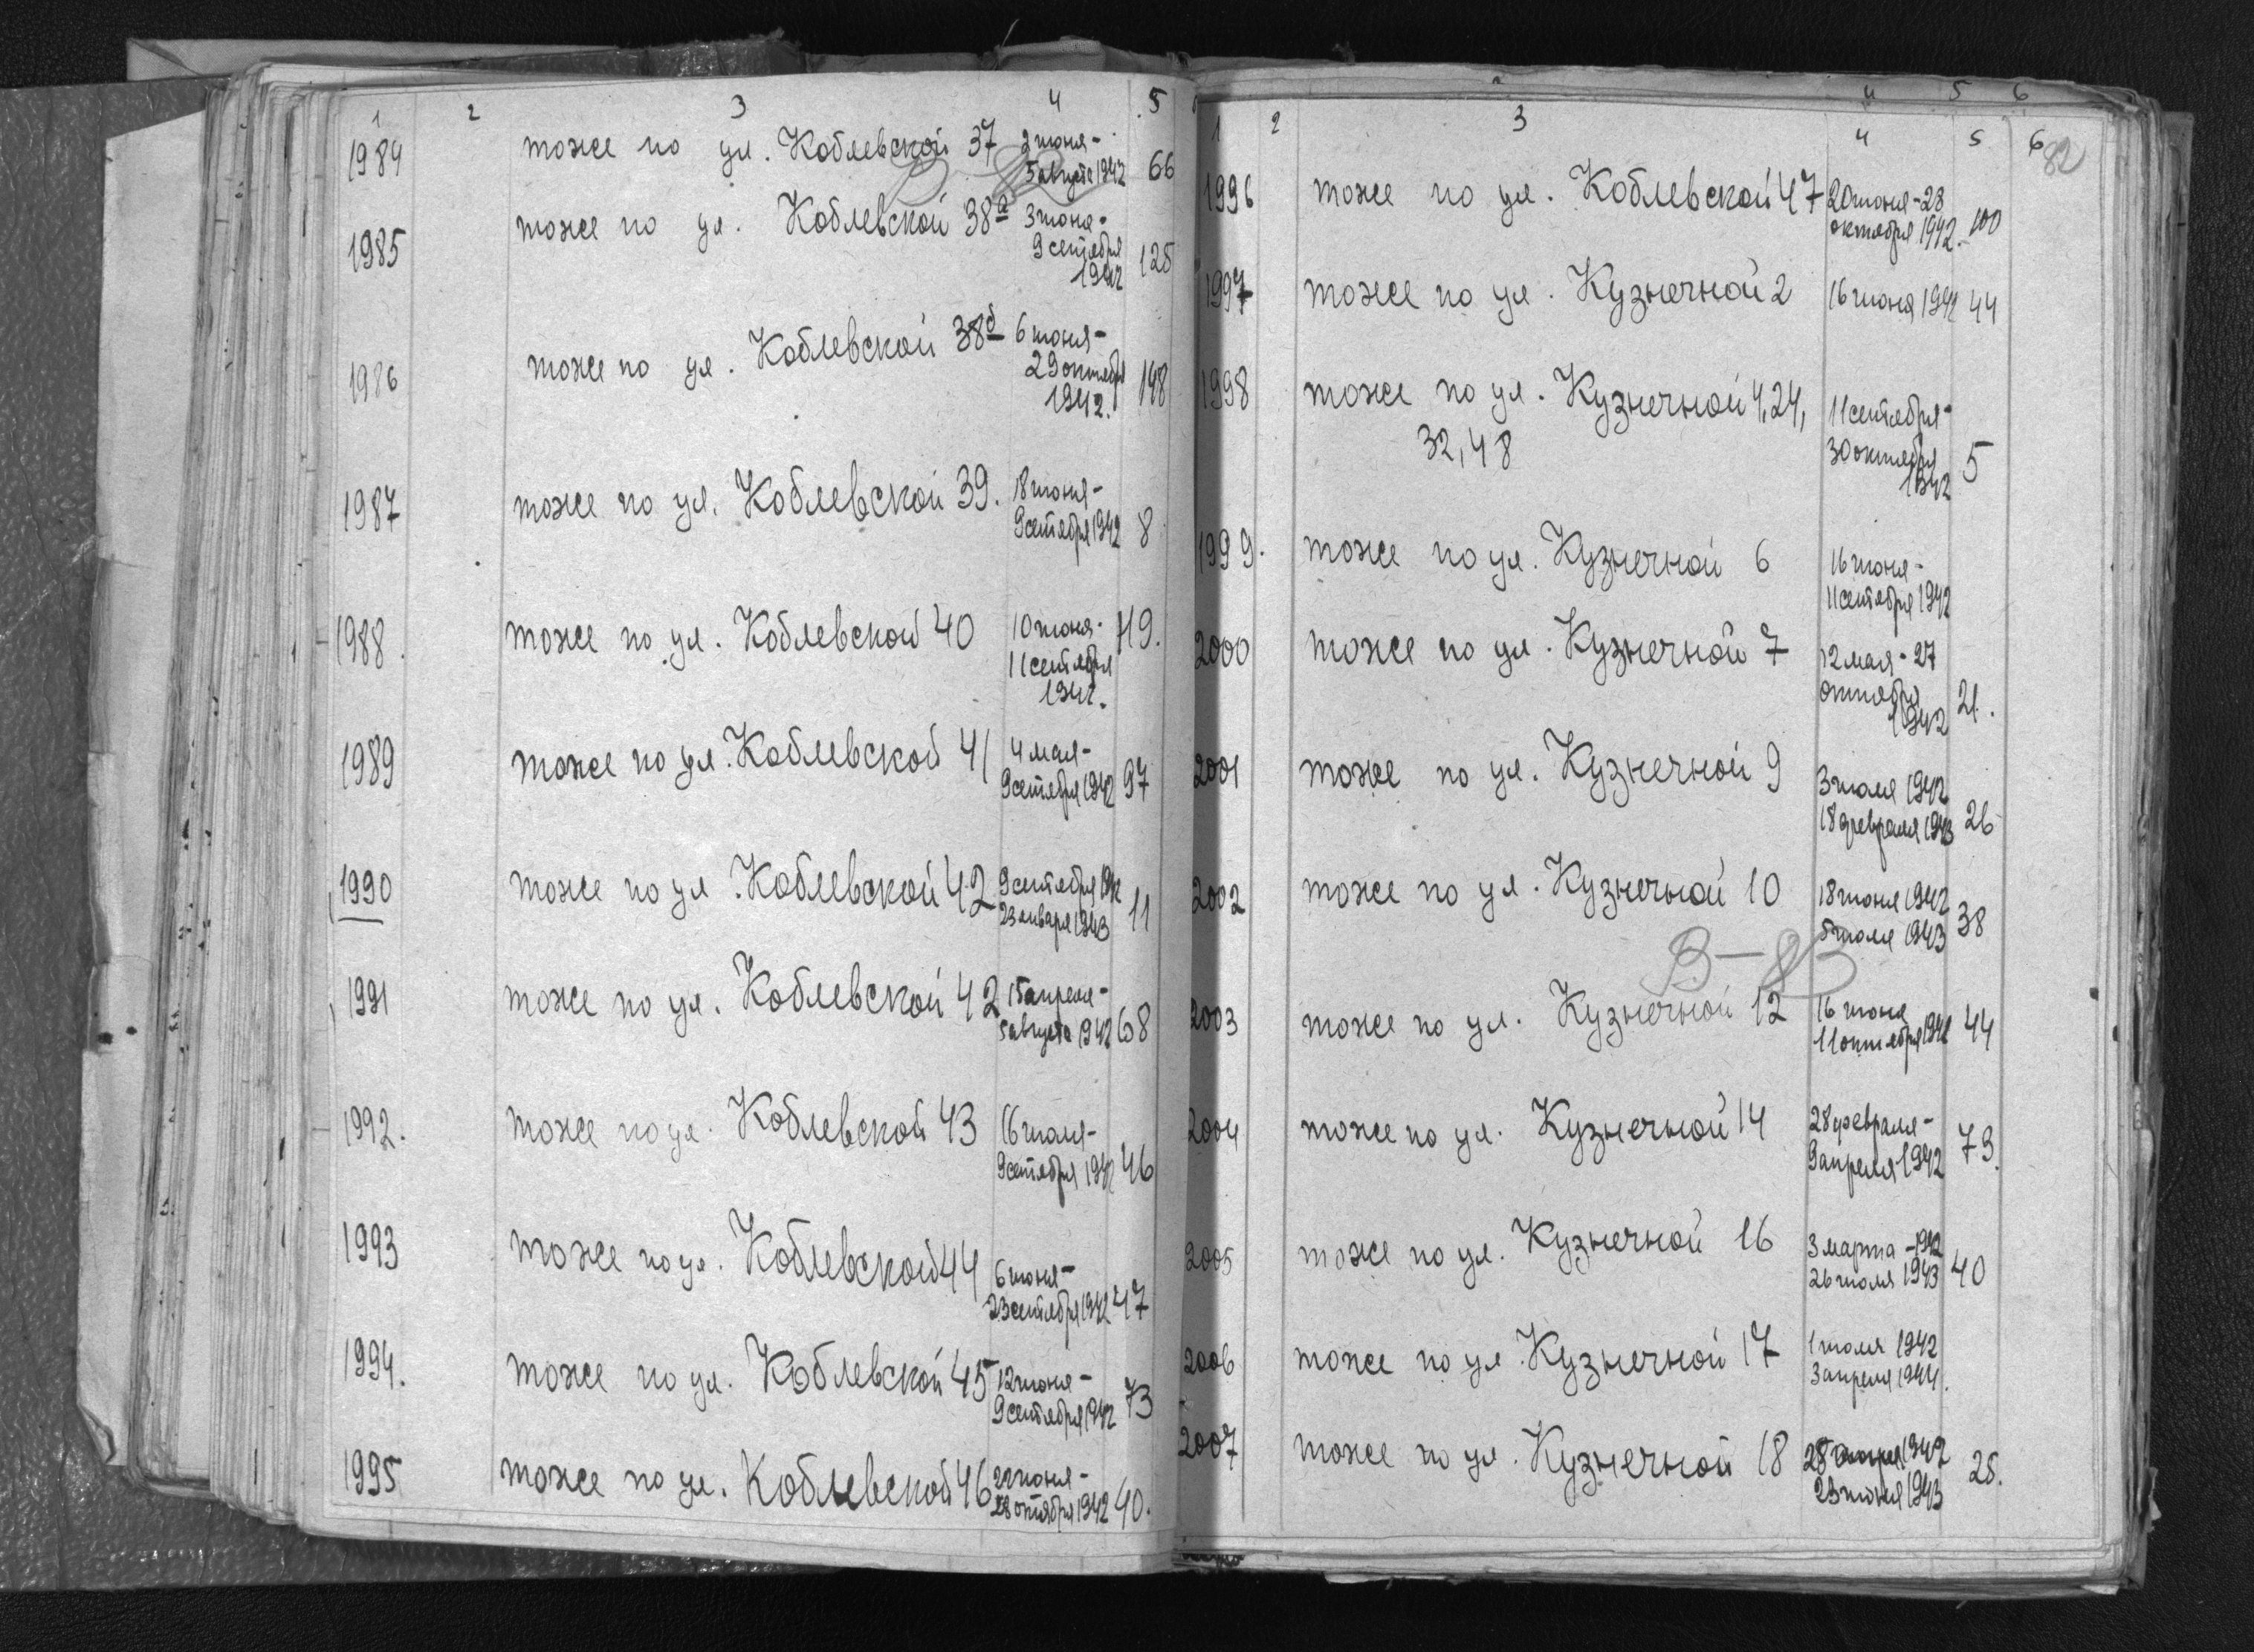 1 2 3 4 5
1984 тоже по ул. Коблевской 37 2 июня-
5 августа 1942 66
1985 тоже по ул. Коблевской 38а 3 июня-
9 сентября
1942 125
1986 тоже по ул. Коблевской 38б 6 июня-
29 октября
1942. 148
1987 тоже по ул. Коблевской 39. 18 июня-
9 сентября 1942 8
1988. тоже по ул. Коблевской 40 10 июня- 119.
11 сентября
1942.
1989 тоже по ул. Коблевской 41 4 мая-
9 сентября 1942 97
1990 тоже по ул. Коблевской 42 9 сентября 1942
23 января 1943 11
1991 тоже по ул. Коблевской 42 15 апреля-
5 августа 1942 68
1992. тоже по ул. Коблевской 43 16 июля-
9 сентября 1942 46
1993 тоже по ул. Коблевской 44 6 июня-
23 сентября 1942 47
1994. тоже по ул. Коблевской 45 12 июня-
9 сентября 1942 73
1995 тоже по ул. Коблевской 46 22 июня-
28 октября 1942 40.
4 5 6
1 2 3 4 5 6
82
1996 тоже по ул. Коблевской 47 20 июня-28
октября 1942. 100
1997 тоже по ул. Кузнечной 2 16 июня 1942 44
1998 тоже по ул. Кузнечной 4, 24, 11 сентября-
32, 48 30 октября 5
1942
1999. тоже по ул. Кузнечной 6 16 июня-
11 сентября 1942
2000 тоже по ул. Кузнечной 7 12 мая-27
октября 21.
1942
2001 тоже по ул. Кузнечной 9 3 июля 1942
18 февраля 1943 26
2002 тоже по ул. Кузнечной 10 18 июня 1942
5 июля 1943 38
2003 тоже по ул. Кузнечной 12 16 июня
11 октября 1942 44
2004 тоже по ул. Кузнечной 14 28 февраля-
9 апреля 1942 73.
2005 тоже по ул. Кузнечной 16 3 марта-1942
26 июля 1943 40
2006 тоже по ул. Кузнечной 17 1 июля 1942
3 апреля 1944.
2007 тоже по ул. Кузнечной 18 1942
23 июня 1943 25.